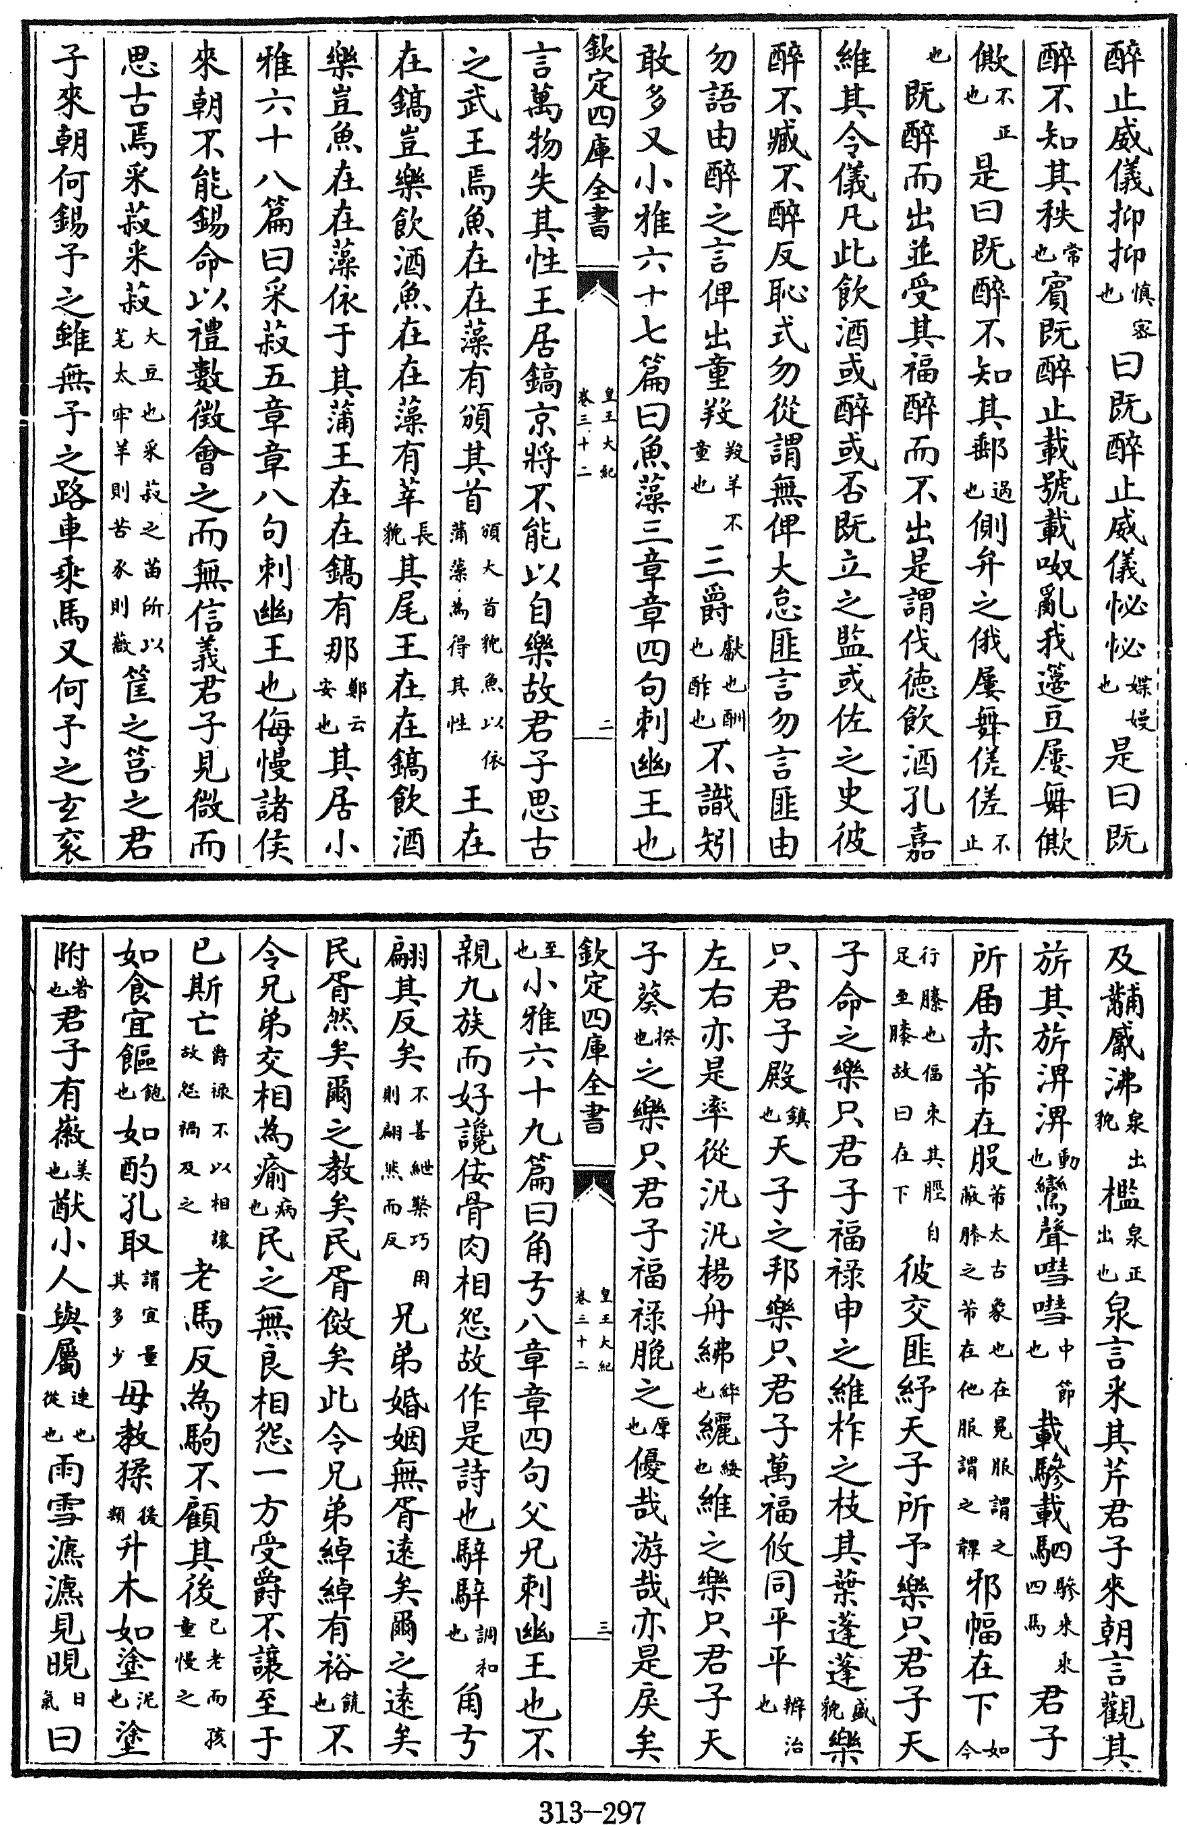 醉止威儀抑抑慎密也曰既醉止威儀怭怭媟嫚也是曰既
醉不知其秩常也賓既醉止載號載呶亂我籩豆屢舞僛
僛不正也是曰既醉不知其郵過也側弁之俄屢舞傞傞不止
也既醉而出並受其福醉而不出是謂伐德飲酒孔嘉
維其令儀凡此飲酒或醉或否既立之監或佐之史彼
醉不臧不醉反恥式勿從謂無俾大怠匪言勿言匪由
勿語由醉之言俾出童羖羖羊不童也三爵獻也酬也酢也不識矧
敢多又小雅六十七篇曰魚藻三章章四句刺幽王也
欽定四庫全書 皇王大紀卷三十二 二
言萬物失其性王居鎬京將不能以自樂故君子思古
之武王焉魚在在藻有頒其首頒大首貌魚以依蒲藻為得其性王在
在鎬豈樂飲酒魚在在藻有莘長貌其尾王在在鎬飲酒
樂豈魚在在藻依于其蒲王在在鎬有那鄭云安也其居小
雅六十八篇曰采菽五章章八句刺幽王也侮慢諸侯
來朝不能錫命以禮數徵會之而無信義君子見微而
思古焉采菽采菽大豆也采菽之苗所以芼太牢羊則苦豕則薇筐之筥之君
子來朝何錫予之雖無予之路車乘馬又何予之玄衮
及黼觱沸泉出貌檻泉正出也泉言采其芹君子來朝言觀其
旂其旂淠淠動也鸞聲嘒嘒中節也載驂載駟驂來來四馬君子
所届赤芾在股芾太古象也在冕服謂之蔽膝之芾在他服謂之韠邪幅在下如今
行縢也偪束其脛自足至膝故曰在下彼交匪紓天子所予樂只君子天
子命之樂只君子福禄申之維柞之枝其葉蓬蓬盛貌樂
只君子殿鎮也天子之邦樂只君子萬福攸同平平辨治也
左右亦是率從汎汎楊舟紼繂也纚緌也維之樂只君子天
子葵揆也之樂只君子福禄膍之厚也優哉游哉亦是戾矣
欽定四庫全書 皇王大紀卷三十二 三
至也小雅六十九篇曰角弓八章章四句父兄刺幽王也不
親九族而好讒佞骨肉相怨故作是詩也騂騂調和也角弓
翩其反矣不善紲檠巧用則翩然而反兄弟婚姻無胥遠矣爾之遠矣
民胥然矣爾之教矣民胥傚矣此令兄弟綽綽有裕饒也不
令兄弟交相為瘉病也民之無良相怨一方受爵不讓至于
已斯亡爵禄不以相讓故怨禍及之老馬反為駒不顧其後已老而孩童慢之
如食宜饇飽也如酌孔取謂宜量其多少毋教猱猨類升木如塗泥也塗
附著也君子有徽美也猷小人與屬連也從也雨雪瀌瀌見晛日氣曰
313-297